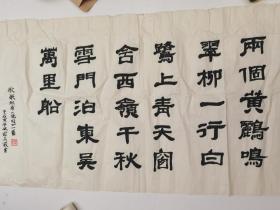 兩個黃鸝鳴
翠柳一行白
鷺上青天窗
含西嶺千秋
雪門泊東吳
萬里船